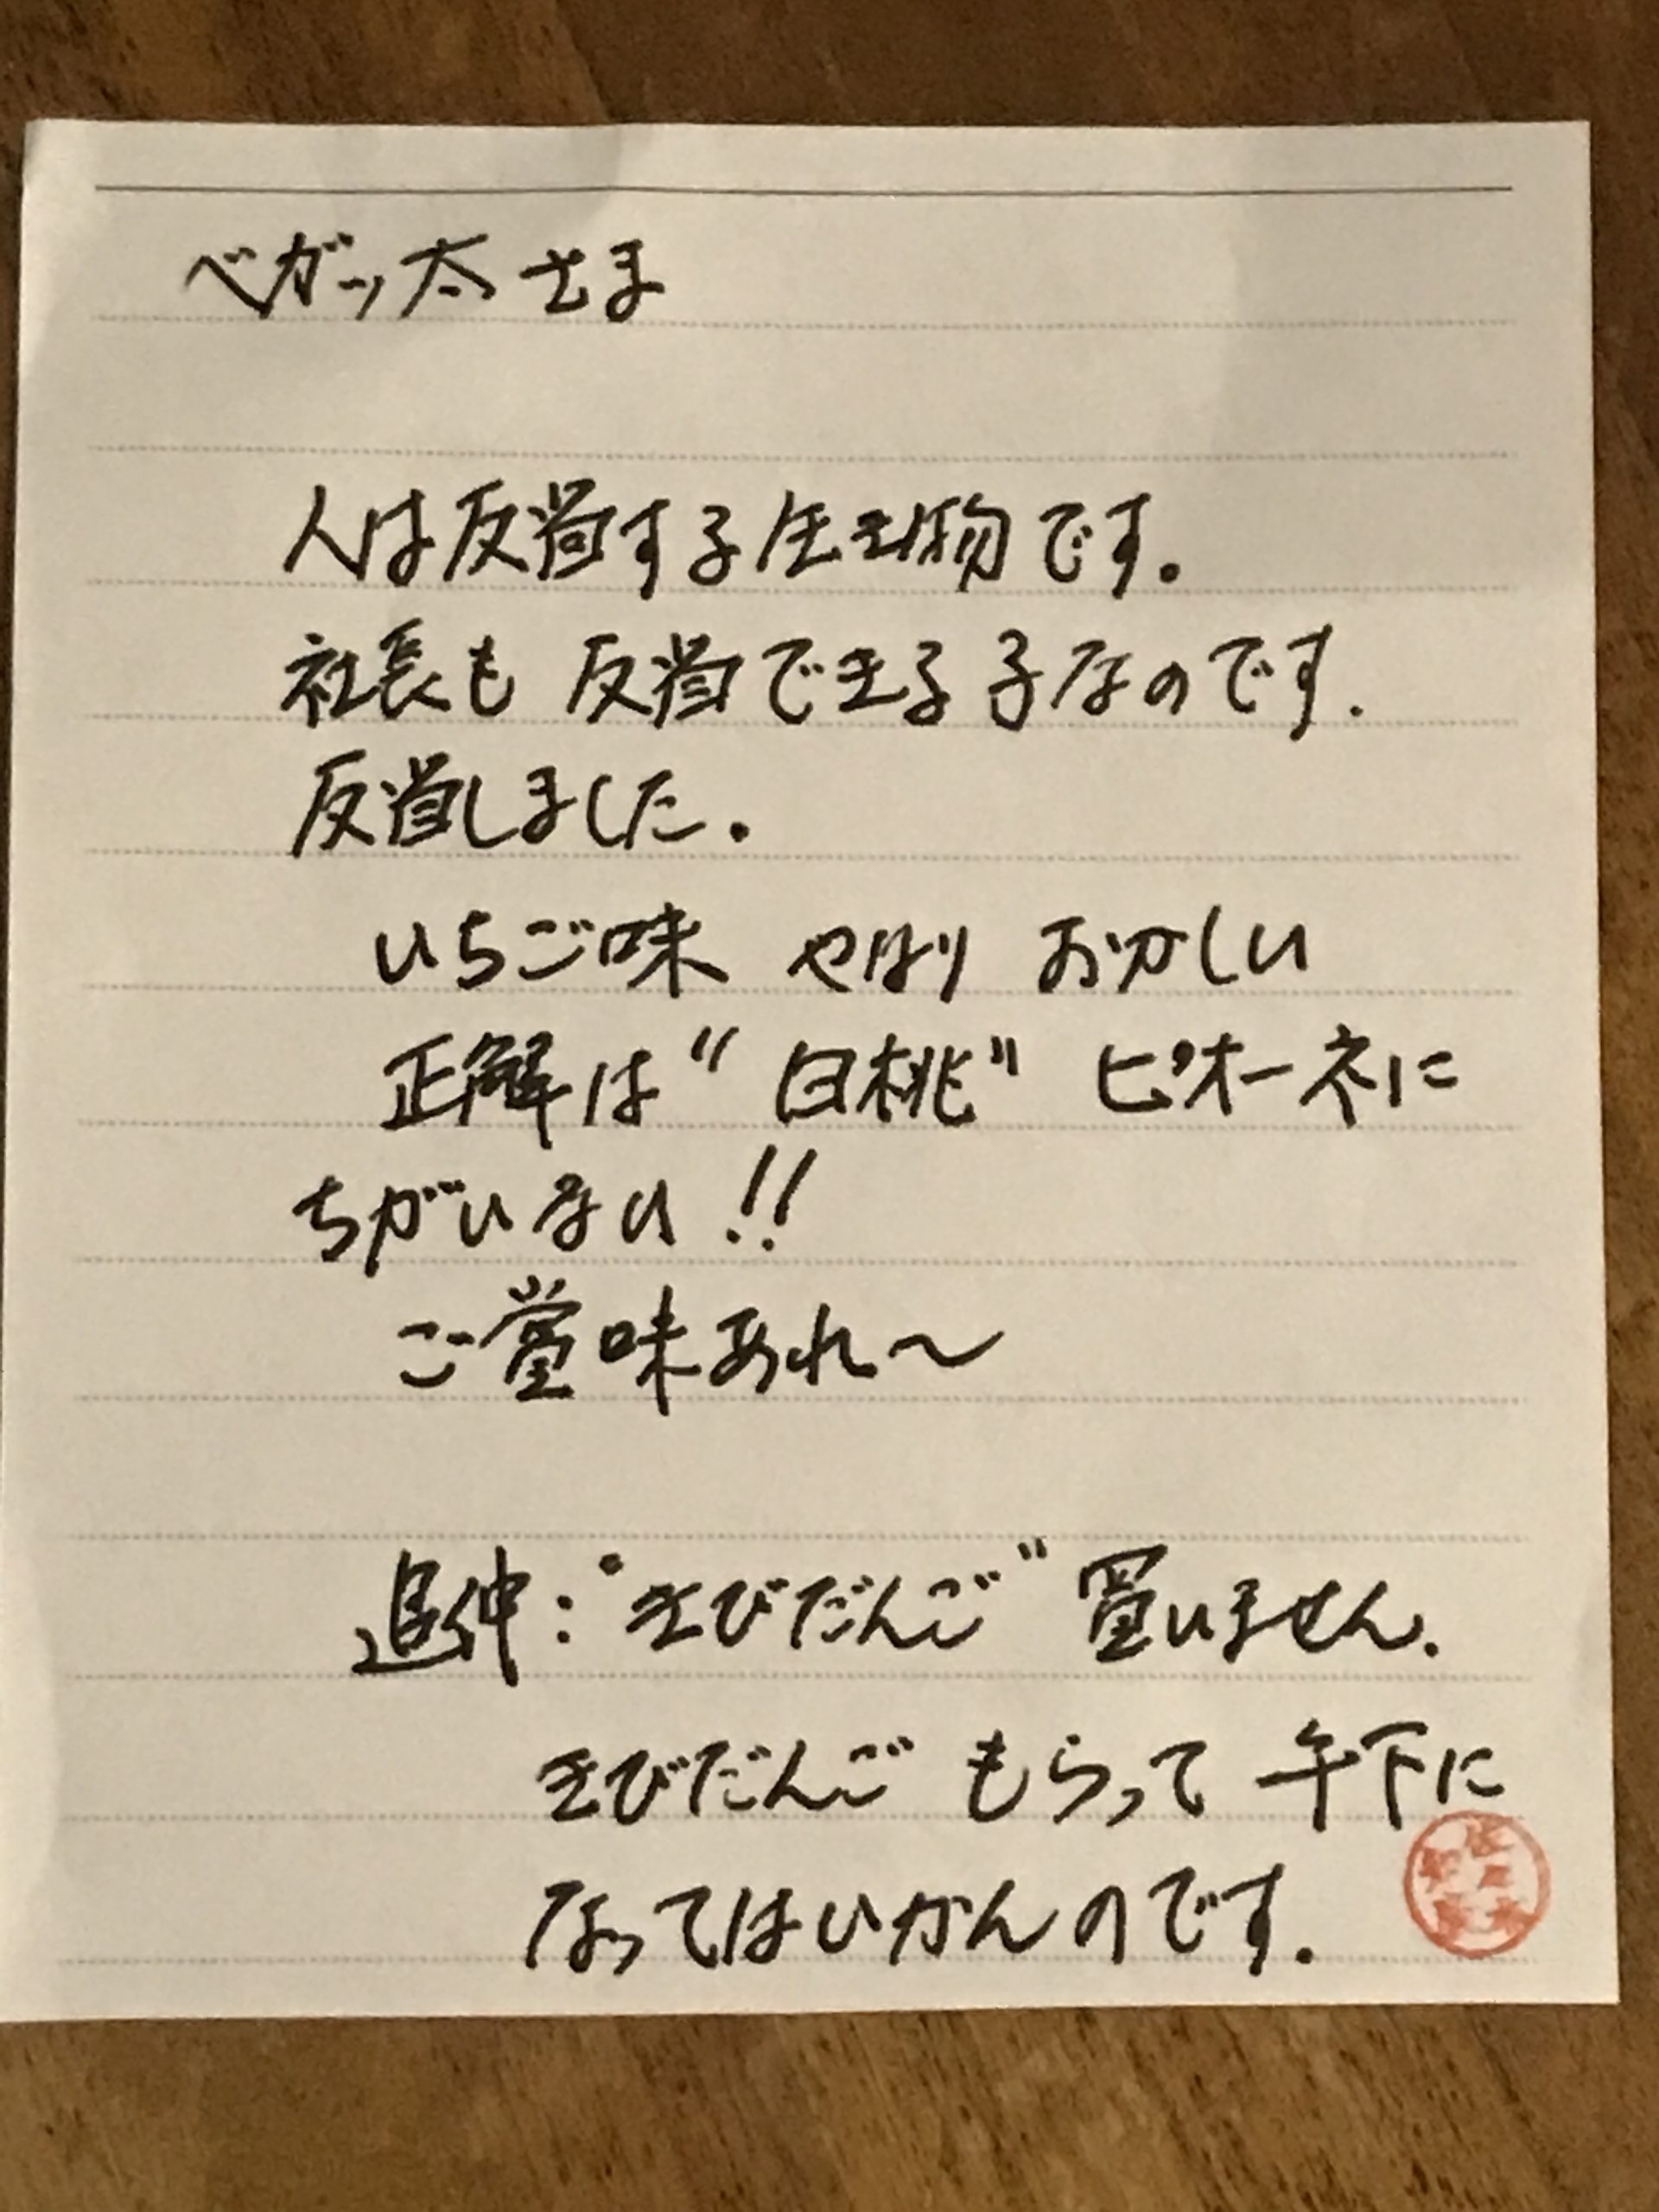 ベガッ太さま
人は反省する生き物です.
社長も 反省できる子なのです.
反省しました.
いちご味 やはり おかしい
正解は“白桃” ピオーネに
ちがいない!!
ご賞味あれ〜
追伸:“きびだんご”買いません.
きびだんご もらって 手下に
なってはいかんのです.